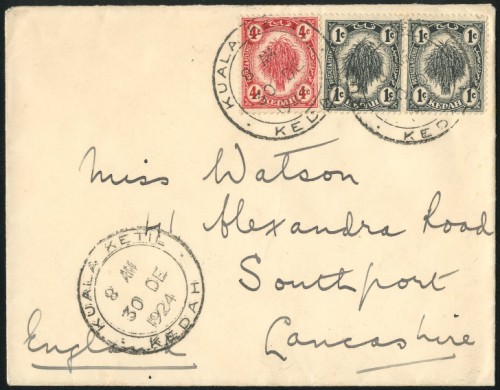 4c 4c
4c KEDAH 4c
1c 1c
1c KEDAH 1c
1c 1c
1c KEDAH 1c
KUALA
8 AM
30
KEDAH
KEDAH
Miss Watson
41 Alexandra Road
Southport
Lancashire
England
KUALA KETIL
8 AM
30 DE
1924
KEDAH